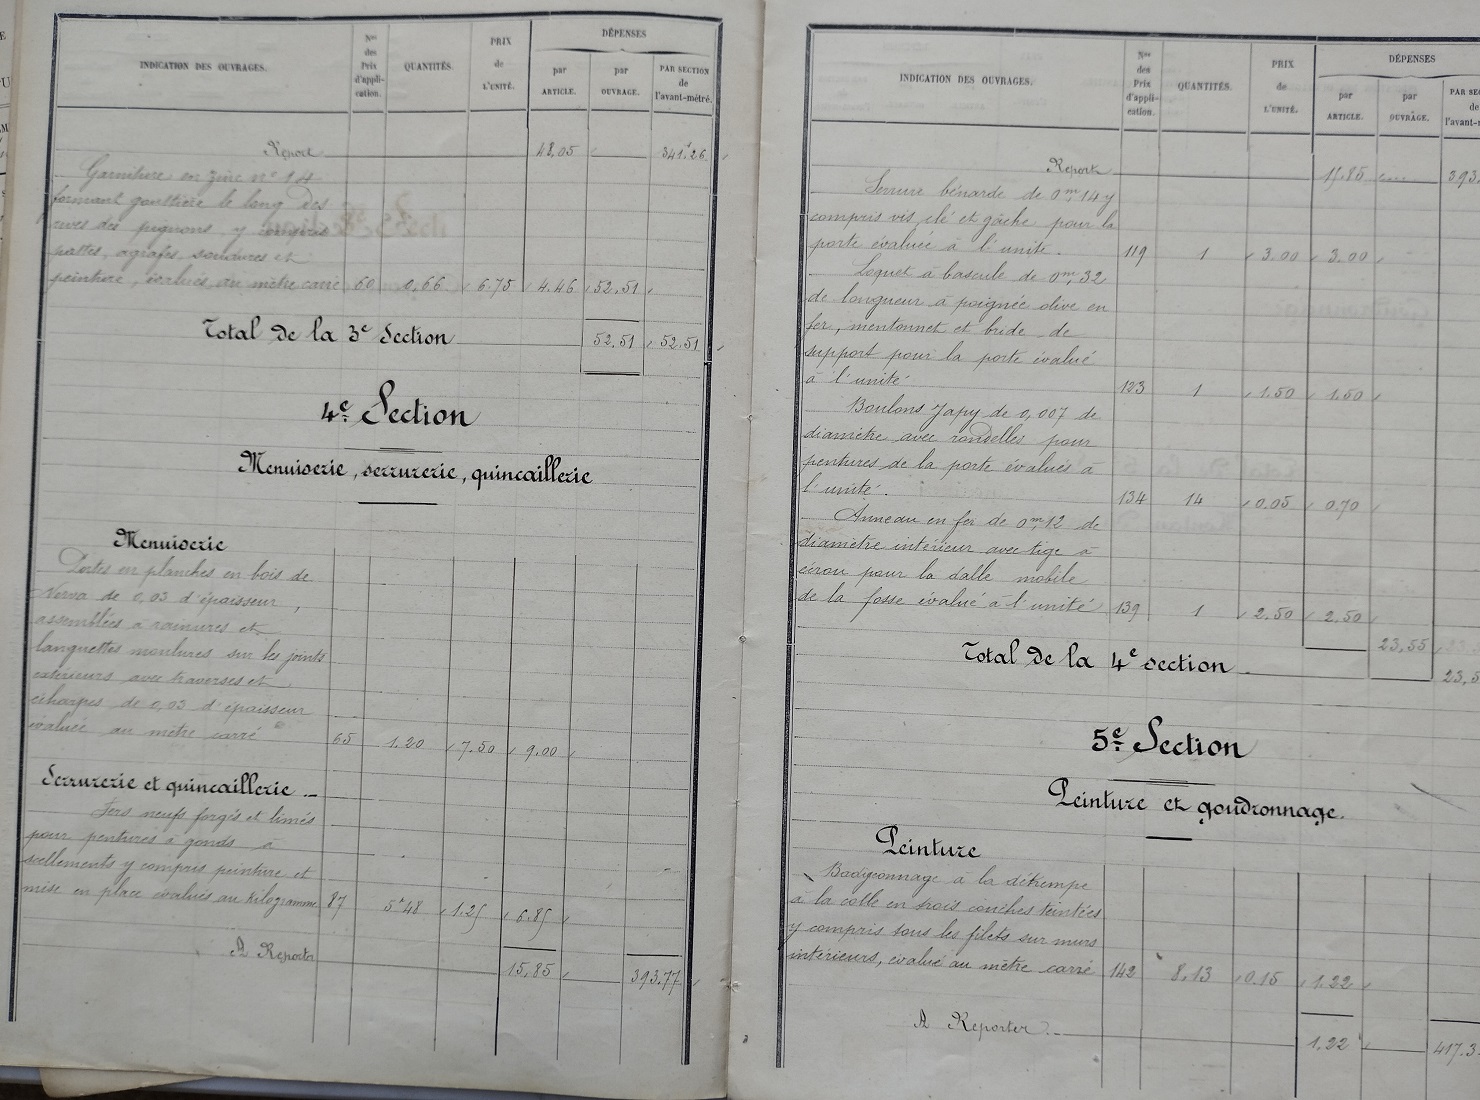 INDICATION DES OUVRAGES.
Nos des Prix d'appli-cation.
QUANTITÉS.
PRIX de L'UNITÉ.
DÉPENSES
par ARTICLE.
par OUVRAGE.
PAR SECTION de l'avant-métré.
Report 48,05 341f.26
Garniture en zinc n° 14
formant gouttière le long des
rives des pignons, y compris
pattes, agrafes, soudures et
peinture, évaluée au mètre carré 60 0,66 6.75 4.46 52.51
Total de la 3e Section 52.51 52.51
4e Section
Menuiserie, serrurerie, quincaillerie
Menuiserie
Portes en planches en bois de
de 0,03 d'épaisseur,
assemblées à rainures et
languettes moulures sur les joints
extérieurs avec traverses et
écharpes de 0,03 d'épaisseur
évaluée au mètre carré 65 1.20 7.50 9.00
Serrurerie et quincaillerie
Fers neufs forgés et limés
pour pentures à gonds à
scellements y compris peinture et
mise en place évalués au kilogramme 87 5k48 1.25 6.85
A Reporter 15,85 393.77
INDICATION DES OUVRAGES.
Nos des Prix d'appli-cation.
QUANTITÉS.
PRIX de L'UNITÉ.
DÉPENSES
par ARTICLE.
par OUVRAGE.
PAR SEC
de
l'avant-m
Report 15.85 393.
Serrure bénarde de 0m,14 y
compris vis, clé et gâche pour la
porte évaluée à l'unité. 119 1 3.00 3.00
Loquet à bascule de 0m,32
de longueur à poignée olive en
fer, mentonnet et bride de
support pour la porte évalué
à l'unité 123 1 1.50 1.50
Boulons Japy de 0,007 de
diamètre avec rondelles pour
pentures de la porte évalués à
l'unité. 134 14 0.05 0.70
Anneau en fer de 0m,12 de
diamètre intérieur avec tige à
écrou pour la dalle mobile
de la fosse évalué à l'unité 139 1 2.50 2.50
23,55
Total de la 4e section 23,5
5e Section
Peinture et goudronnage.
Peinture
Badigeonnage à la détrempe
à la colle en trois couches teintées
y compris tous les filets sur murs
intérieurs, évalué au mètre carré 142 8,13 0.15 1.22
A Reporter 1.22 417.3